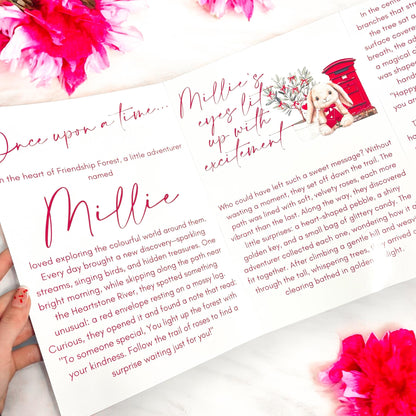 Once upon a time...
in the heart of Friendship Forest, a little adventurer
named
Millie
loved exploring the colourful world around them.
Every day brought a new discovery—sparkling
streams, singing birds, and hidden treasures. One
bright morning, while skipping along the path near
the Heartstone River, they spotted something
unusual: a red envelope resting on a mossy log.
Curious, they opened it and found a note that read:
"To someone special, You light up the forest with
your kindness. Follow the trail of roses to find a
surprise waiting just for you!"
Millie's
eyes lit
up with
excitement
Who could have left such a sweet message? Without
wasting a moment, they set off down the trail. The
path was lined with soft, velvety roses, each more
vibrant than the last. Along the way, they discovered
little surprises: a heart-shaped pebble, a shiny
golden key, and a small bag of glittery candy. The
adventurer collected each one, wondering how
fit together. After climbing a gentle hill and
through the tall, whispering trees, arrived
clearing bathed in golden light.
In the cente
branches that str
the tree sat a
surface covere
breath, the ad
a magical c
was shape
hand
"Happy
you a